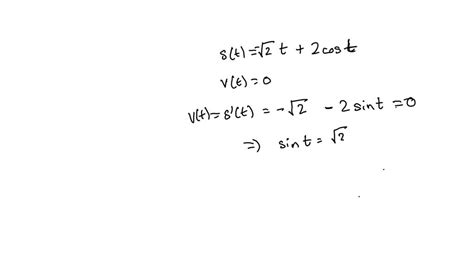 s(t) = -√2 t + 2cos t
v(t) = 0
v(t) = s'(t) = -√2 - 2 sin t = 0
=) sin t = √2